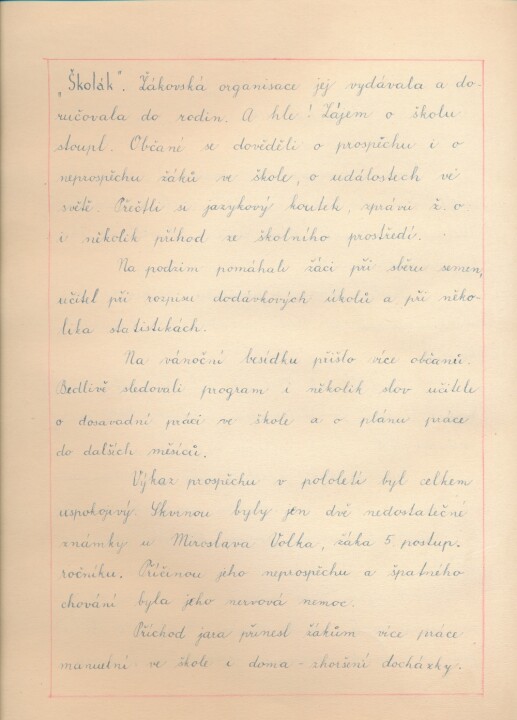 „Školák“. Žákovská organisace jej vydávala a do-
ručovala do rodin. A hle! Zájem o školu
stoupl. Občané se dověděli o prospěchu i o
neprospěchu žáků ve škole, o událostech ve
světě. Přečtli si jazykový koutek, zprávu ž. o.
i několik příhod ze školního prostředí.
Na podzim pomáhali žáci při sběru semen,
učitel při rozpisu dodávkových úkolů a při něko-
lika statistikách.
Na vánoční besídku přišlo více občanů.
Bedlivě sledovali program i několik slov učitele
o dosavadní práci ve škole a o plánu práce
do dalších měsíců.
Výkaz prospěchu v pololetí byl celkem
uspokojivý. Skvrnou byly jen dvě nedostatečné
známky u Miroslava Volka, žáka 5. postup.
ročníku. Příčinou jeho neprospěchu a špatného
chování byla jeho nervová nemoc.
Příchod jara přinesl žákům více práce
manuelní ve škole i doma – zhoršení docházky.